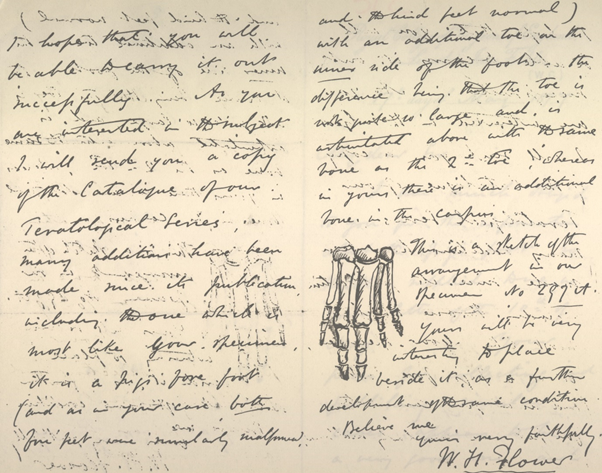 I hope that you will
be able to carry it out
successfully. As you
are interested in the subject
I will send you a copy
of the Catalogue of our
Teratological Series,
many additions have been
made since its publication
including the one which is
most like your specimen.
it is a pigs fore foot
(and as in your case both
fore feet were similarly malformed
and the hind feet normal)
with an additional toe on the
inner side of the foot - the
difference being that the toe is
not quite so large and is
articulated above with the same
bone as the 2nd toe, whereas
in yours there is an additional
bone in the carpus.
This is a sketch of the
arrangement in our
specimen No 299 A.
Yours will be very
interesting to place
beside it as a further
development of the same condition.
Believe me
yours very faithfully
W. H. Flower